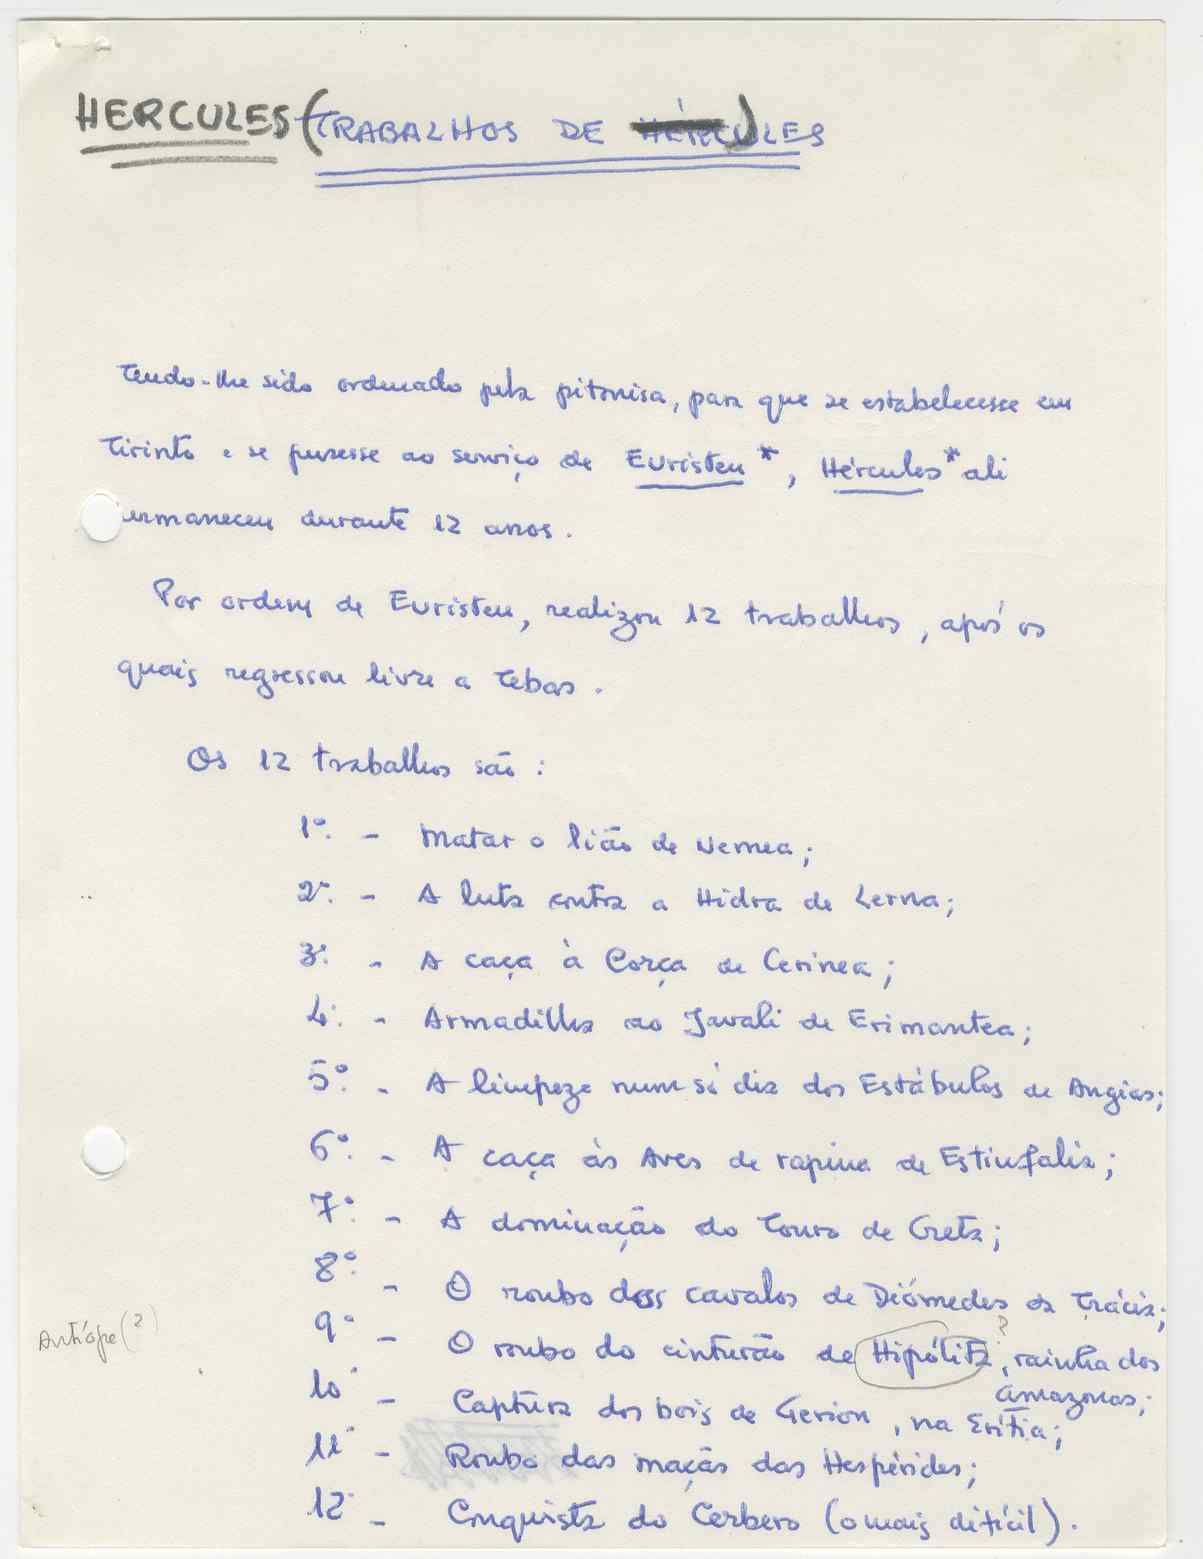 HERCULES (TRABALHOS DE HÉRCULES)
Tendo-lhe sido ordenado pela pitonisa, para que se estabelecesse em
Tirinto e se pusesse ao serviço de Euristeu*, Hércules* ali
permaneceu durante 12 anos.
Por ordem de Euristeu, realizou 12 trabalhos, após os
quais regressou livre a Tebas.
Os 12 trabalhos são:
1º. - Matar o lião de Nemea;
2º. - A luta contra a Hidra de Lerna;
3º. - A caça à Corça de Cerinea;
4º. - Armadilha ao Javali de Erimantea;
5º. - A limpeza num só dia dos Estábulos de Augias;
6º. - A caça às Aves de rapina de Estinfalia;
7º. - A dominação do Touro de Creta;
8º. - O roubo dos cavalos de Diómedes da Trácia;
Antíope (?)
9º - O roubo do cinturão de Hipólita ?, rainha das
amazonas;
10º - Captura dos bois de Gerion, na Eritia;
11º - Roubo das maçãs das Hespérides;
12º - Conquista do Cerbero (o mais difícil).